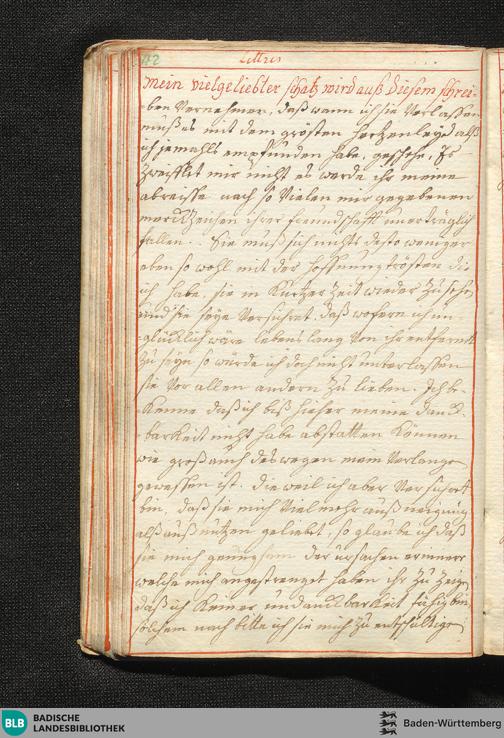 42
Lettres
Mein vielgeliebter schatz wird auß diesem schrei-
ben Vernehmen, daß wann ich sie Verlassen
muß es mit dem grösten hertzenleyd alß
ich jemahls empfunden habe, geschehe. Es
zweifflet mir nicht es werde ihr meine
abreisse nach so Vielen mir gegebenen
merckzeichen ihrer freundschafft unerträglich
fallen. Sie muß sich nichts desto weniger
eben so wohl mit der hoffnung trösten die
ich habe, sie in Kurtzer Zeit wieder Zu sehen
und sie seye Versichret, daß wofern ich un-
glücklich wäre lebenslang Von ihr entfernet
Zu seyn so würde ich doch nicht unterlassen
sie Vor allen andern Zu lieben. Ich be-
Kenne daß ich biß hieher meine danck-
barkeit nicht habe abstatten Können
wie groß auch deswegen mein Verlangen
gewessen ist. die weil ich aber Versichert
bin, daß sie mich Vielmehr auß neigung
alß auß nutzen geliebet, so glaube ich daß
sie mich der ursachen
welche mich angestrenget haben ihr Zu Zeigen
daß ich Keiner undanckbarkeit fähig bin,
solchem nach bitte ich sie mich Zu entschuldigen
BLB
BADISCHE
LANDESBIBLIOTHEK
Baden-Württemberg